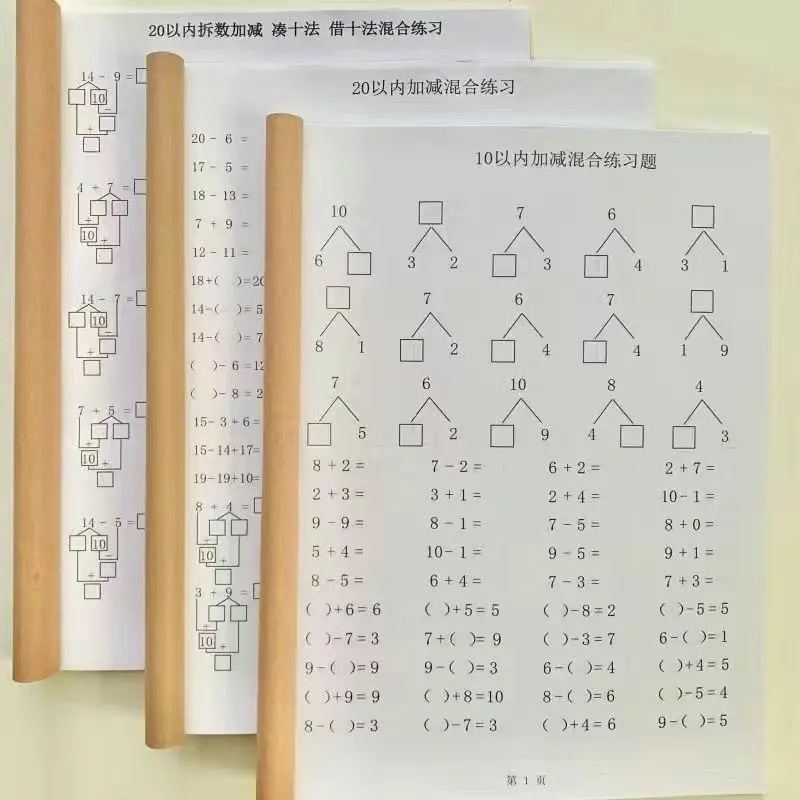 20以内拆数加减 凑十法 借十法混合练习
14 - 9 = □
□ 10
-
+ □
□
4 + 7 = □
□ □
+
10
+
□
14 - 7 = □
□ 10
-
+ □
□
7 + 5 = □
□ □
+
10
+
□
14 - 5 = □
□ 10
-
+ □
□
20以内加减混合练习
20 - 6 =
17 - 5 =
18 - 13 =
7 + 9 =
12 - 11 =
18+( )=20
14-( )= 5
14-( )= 7
( )- 6 =12
( )- 8 = 2
15- 3 + 6 =
15-14+17=
19-19+10=
8 + 4 = □
□ □
+
10
+
□
3 + 9 = □
□ □
+
10
+
□
10以内加减混合练习题
10 □ 7 6 □
6 □ 3 2 □ 3 □ 4 3 1
□ 7 6 7 □
8 1 □ 2 □ 4 □ 4 1 9
7 6 10 8 4
□ 5 □ 2 □ 9 4 □ □ 3
8 + 2 = 7 - 2 = 6 + 2 = 2 + 7 =
2 + 3 = 3 + 1 = 2 + 4 = 10- 1 =
9 - 9 = 8 - 1 = 7 - 5 = 8 + 0 =
5 + 4 = 10- 1 = 9 - 5 = 9 + 1 =
8 - 5 = 6 + 4 = 7 - 3 = 7 + 3 =
( )+6 = 6 ( )+5 = 5 ( )-8 = 2 ( )-5 = 5
( )-7 = 3 7+( )= 9 ( )-3 = 7 6-( )= 1
9-( )= 9 9-( )= 3 6-( )= 4 ( )+4 = 5
( )+9 = 9 ( )+8 =10 8-( )= 6 ( )-5 = 4
8-( )= 3 ( )-7 = 3 ( )+4 = 6 9-( )= 5
第 1 页